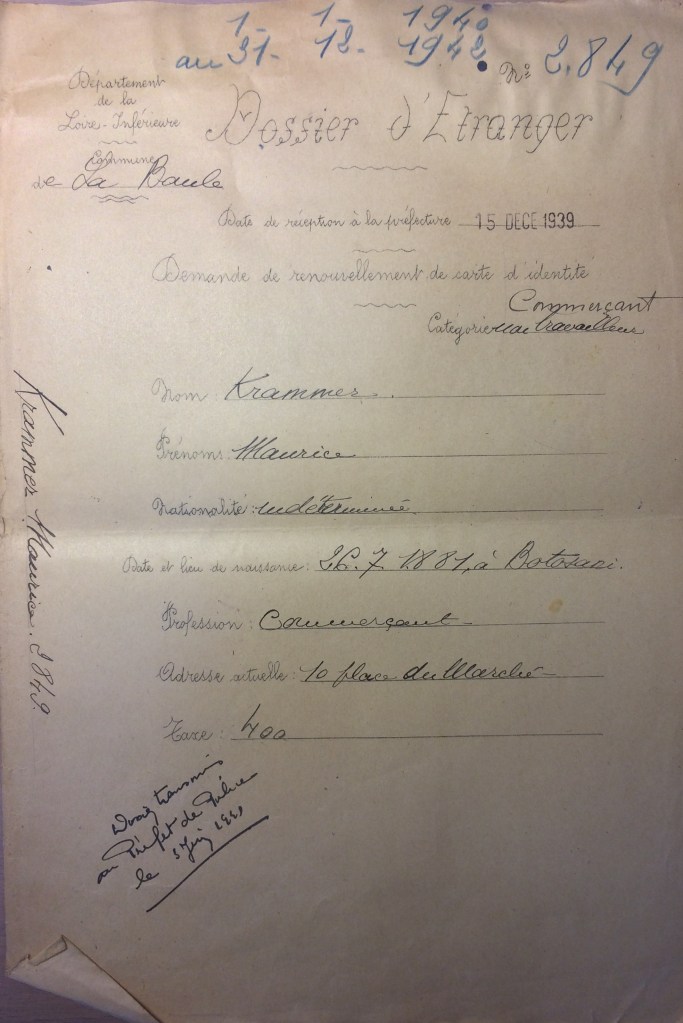 1- 1- 1940
au 31- 12- 1942
N° 2.849
Département
de la
Loire-Inférieure
Commune
de La Baule
Dossier d'Etranger
Date de réception à la préfecture 15 DECE 1939
Demande de renouvellement de carte d'identité
Commerçant
Catégorie: non travailleur
Nom: Krammer.
Prénoms: Maurice
Nationalité: indéterminée
Date et lieu de naissance: 26.7.1881, à Botosani.
Profession: Commerçant
Adresse actuelle: 10 place du Marché
Taxe: 400
Krammer Maurice. 2849.
Dossier transmis
au Préfet de Police
le 5 Juin